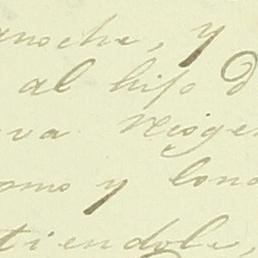 anoche, y
al hijo d
va Rioger
omo y lond
tiendole,